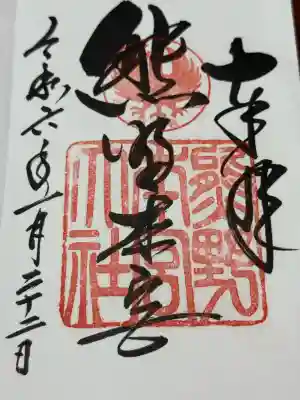 奉拝
熊野本宮
熊野
本宮
大社
令和六年一月二十二日